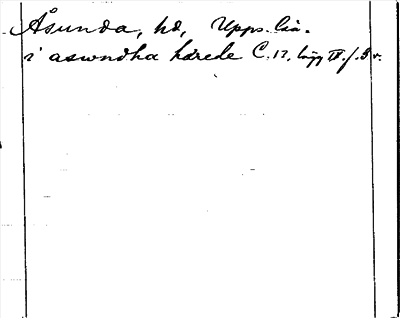 Åsunda, hd, Upps. län.
i aswndha hærede C. 12, lägg IV. f. 3 v.